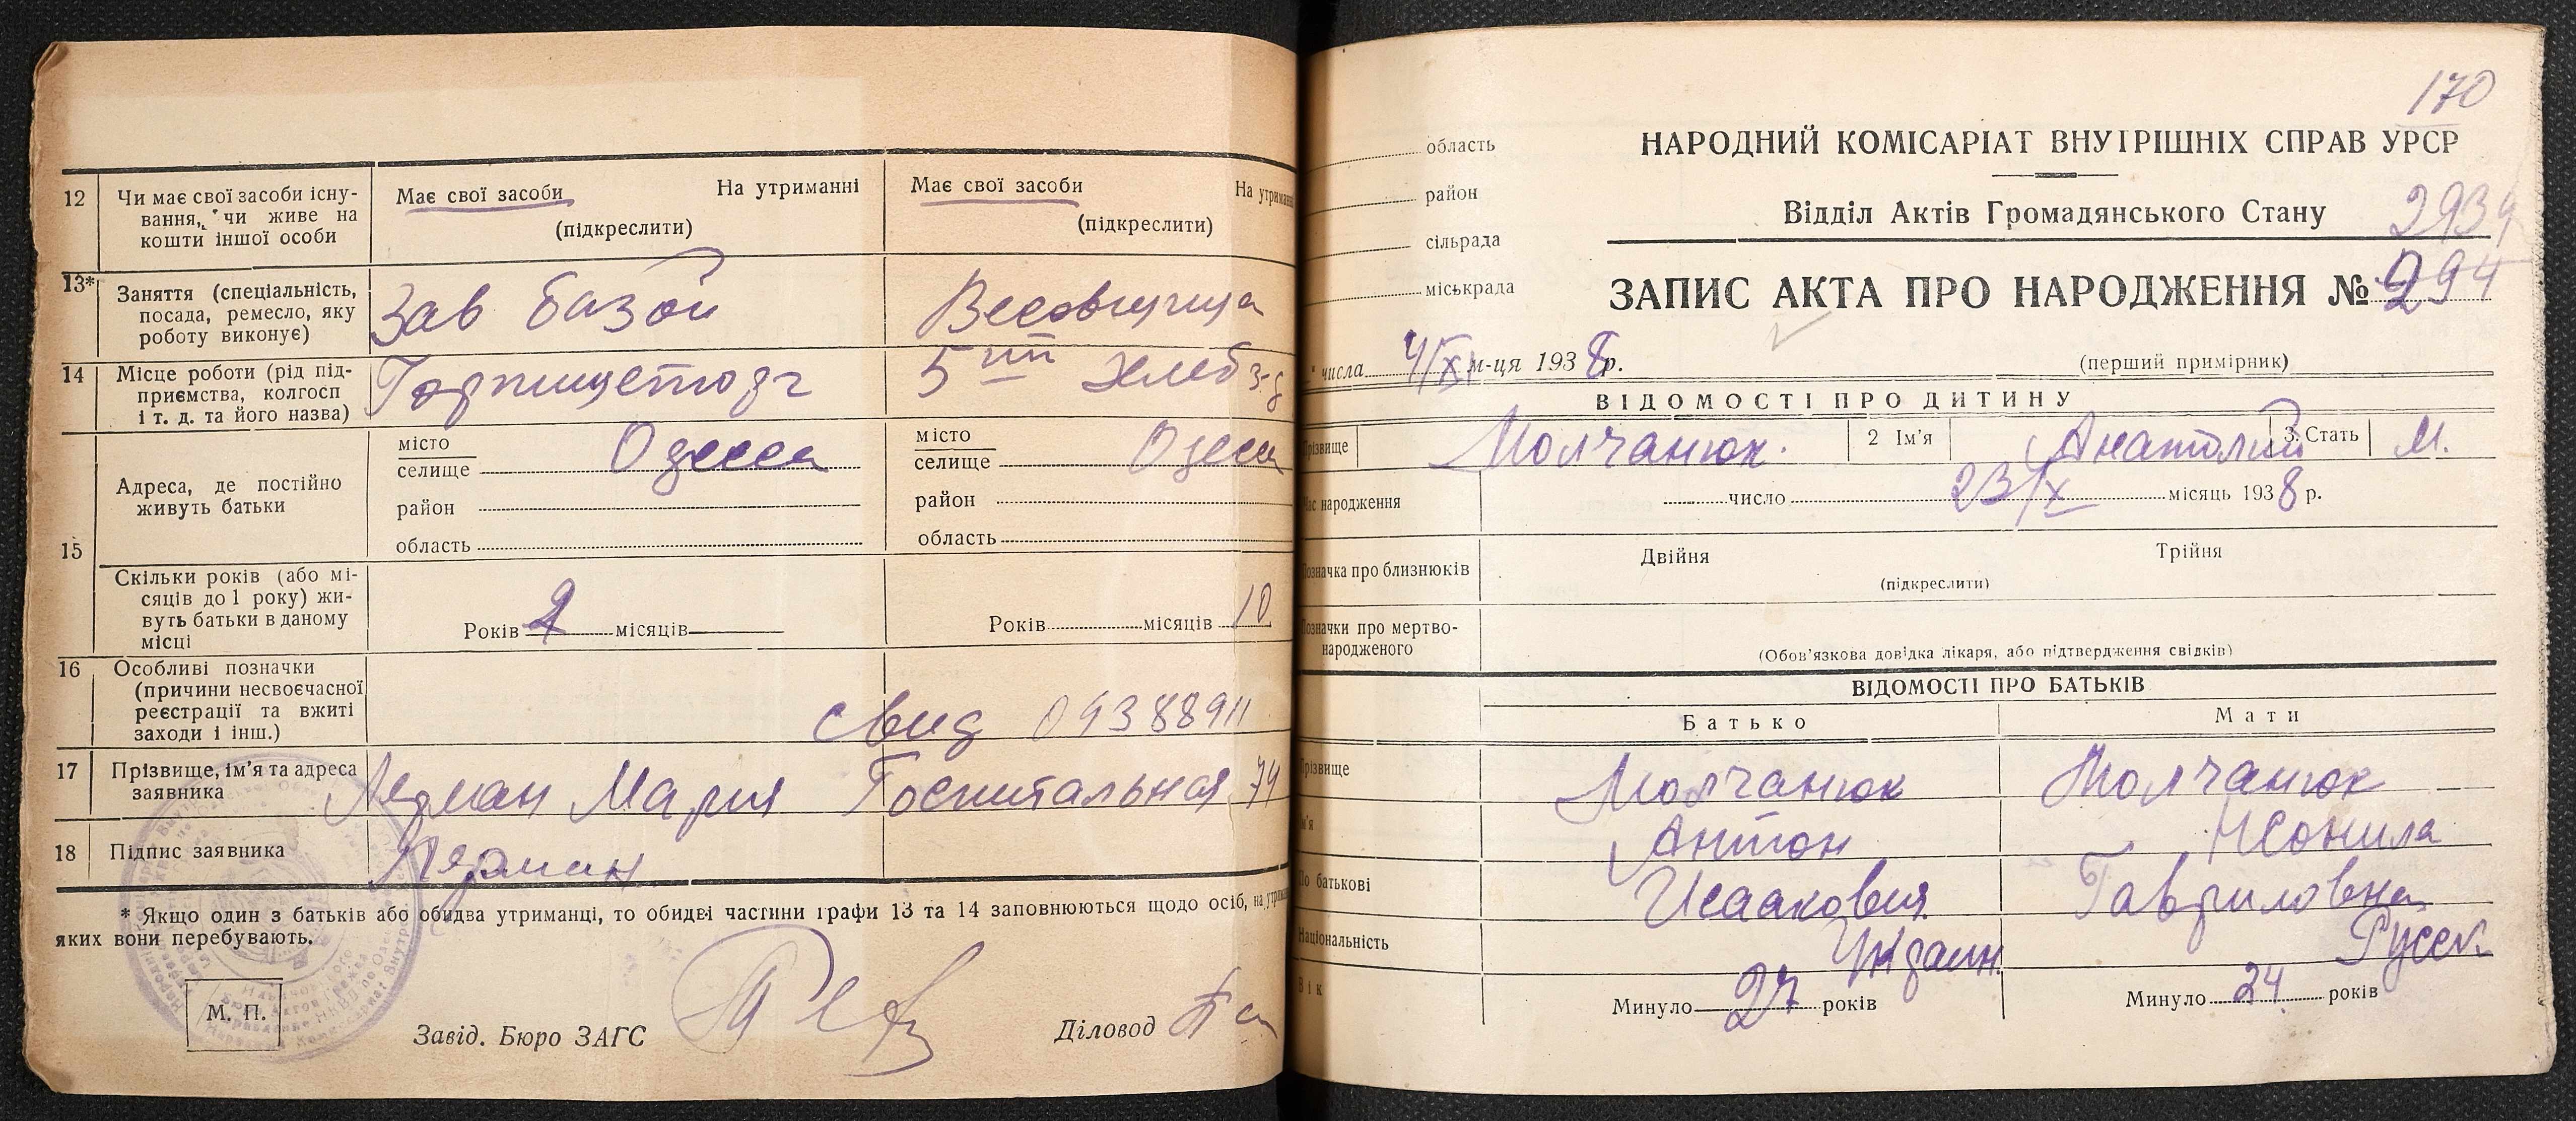 12 Чи має свої засоби існу-
вання, чи живе на
кошти іншої особи
Має свої засоби На утриманні
(підкреслити)
Має свої засоби На утриманні
(підкреслити)
13* Заняття (спеціальність,
посада, ремесло, яку
роботу виконує)
Зав базой
Весовщица
14 Місце роботи (рід під-
приємства, колгосп
і т. д. та його назва)
5 ый Хлеб з-д
15 Адреса, де постійно
живуть батьки
місто
селище Одесса
район
область
місто
селище Одесса
район
область
Скільки років (або мі-
сяців до 1 року) жи-
вуть батьки в даному
місці
Років 2 місяців
Років місяців 10
16 Особливі позначки
(причини несвоєчасної
реєстрації та вжиті
заходи і інш.)
свид 0938891
17 Прізвище, ім'я та адреса
заявника
Лерман Мария Госпитальная 74
18 Підпис заявника
Лерман
* Якщо один з батьків або обидва утриманці, то обидві частини графи 13 та 14 заповнюються щодо осіб, на утрим
яких вони перебувають.
М. П.
Завід. Бюро ЗАГС
Діловод
170
область
район
сільрада
міськрада
НАРОДНИЙ КОМІСАРІАТ ВНУТРІШНІХ СПРАВ УРСР
Відділ Актів Громадянського Стану
2939
ЗАПИС АКТА ПРО НАРОДЖЕННЯ № 294
числа 4/XI м-ця 1938 р.
(перший примірник)
ВІДОМОСТІ ПРО ДИТИНУ
Прізвище Молчанюк. 2 Ім'я Анатолий 3. Стать М.
Час народження
число 23/X місяць 1938 р.
Позначка про близнюків
Двійня Трійня
(підкреслити)
Позначки про мертво-
народженого
(Обов'язкова довідка лікаря, або підтвердження свідків)
ВІДОМОСТІ ПРО БАТЬКІВ
Батько Мати
Прізвище Молчанюк Молчанюк
Ім'я Антон Неонила
По батькові Исаакович Гавриловна
Національність Украин. Русск
Вік Минуло 27 років Минуло 24 років